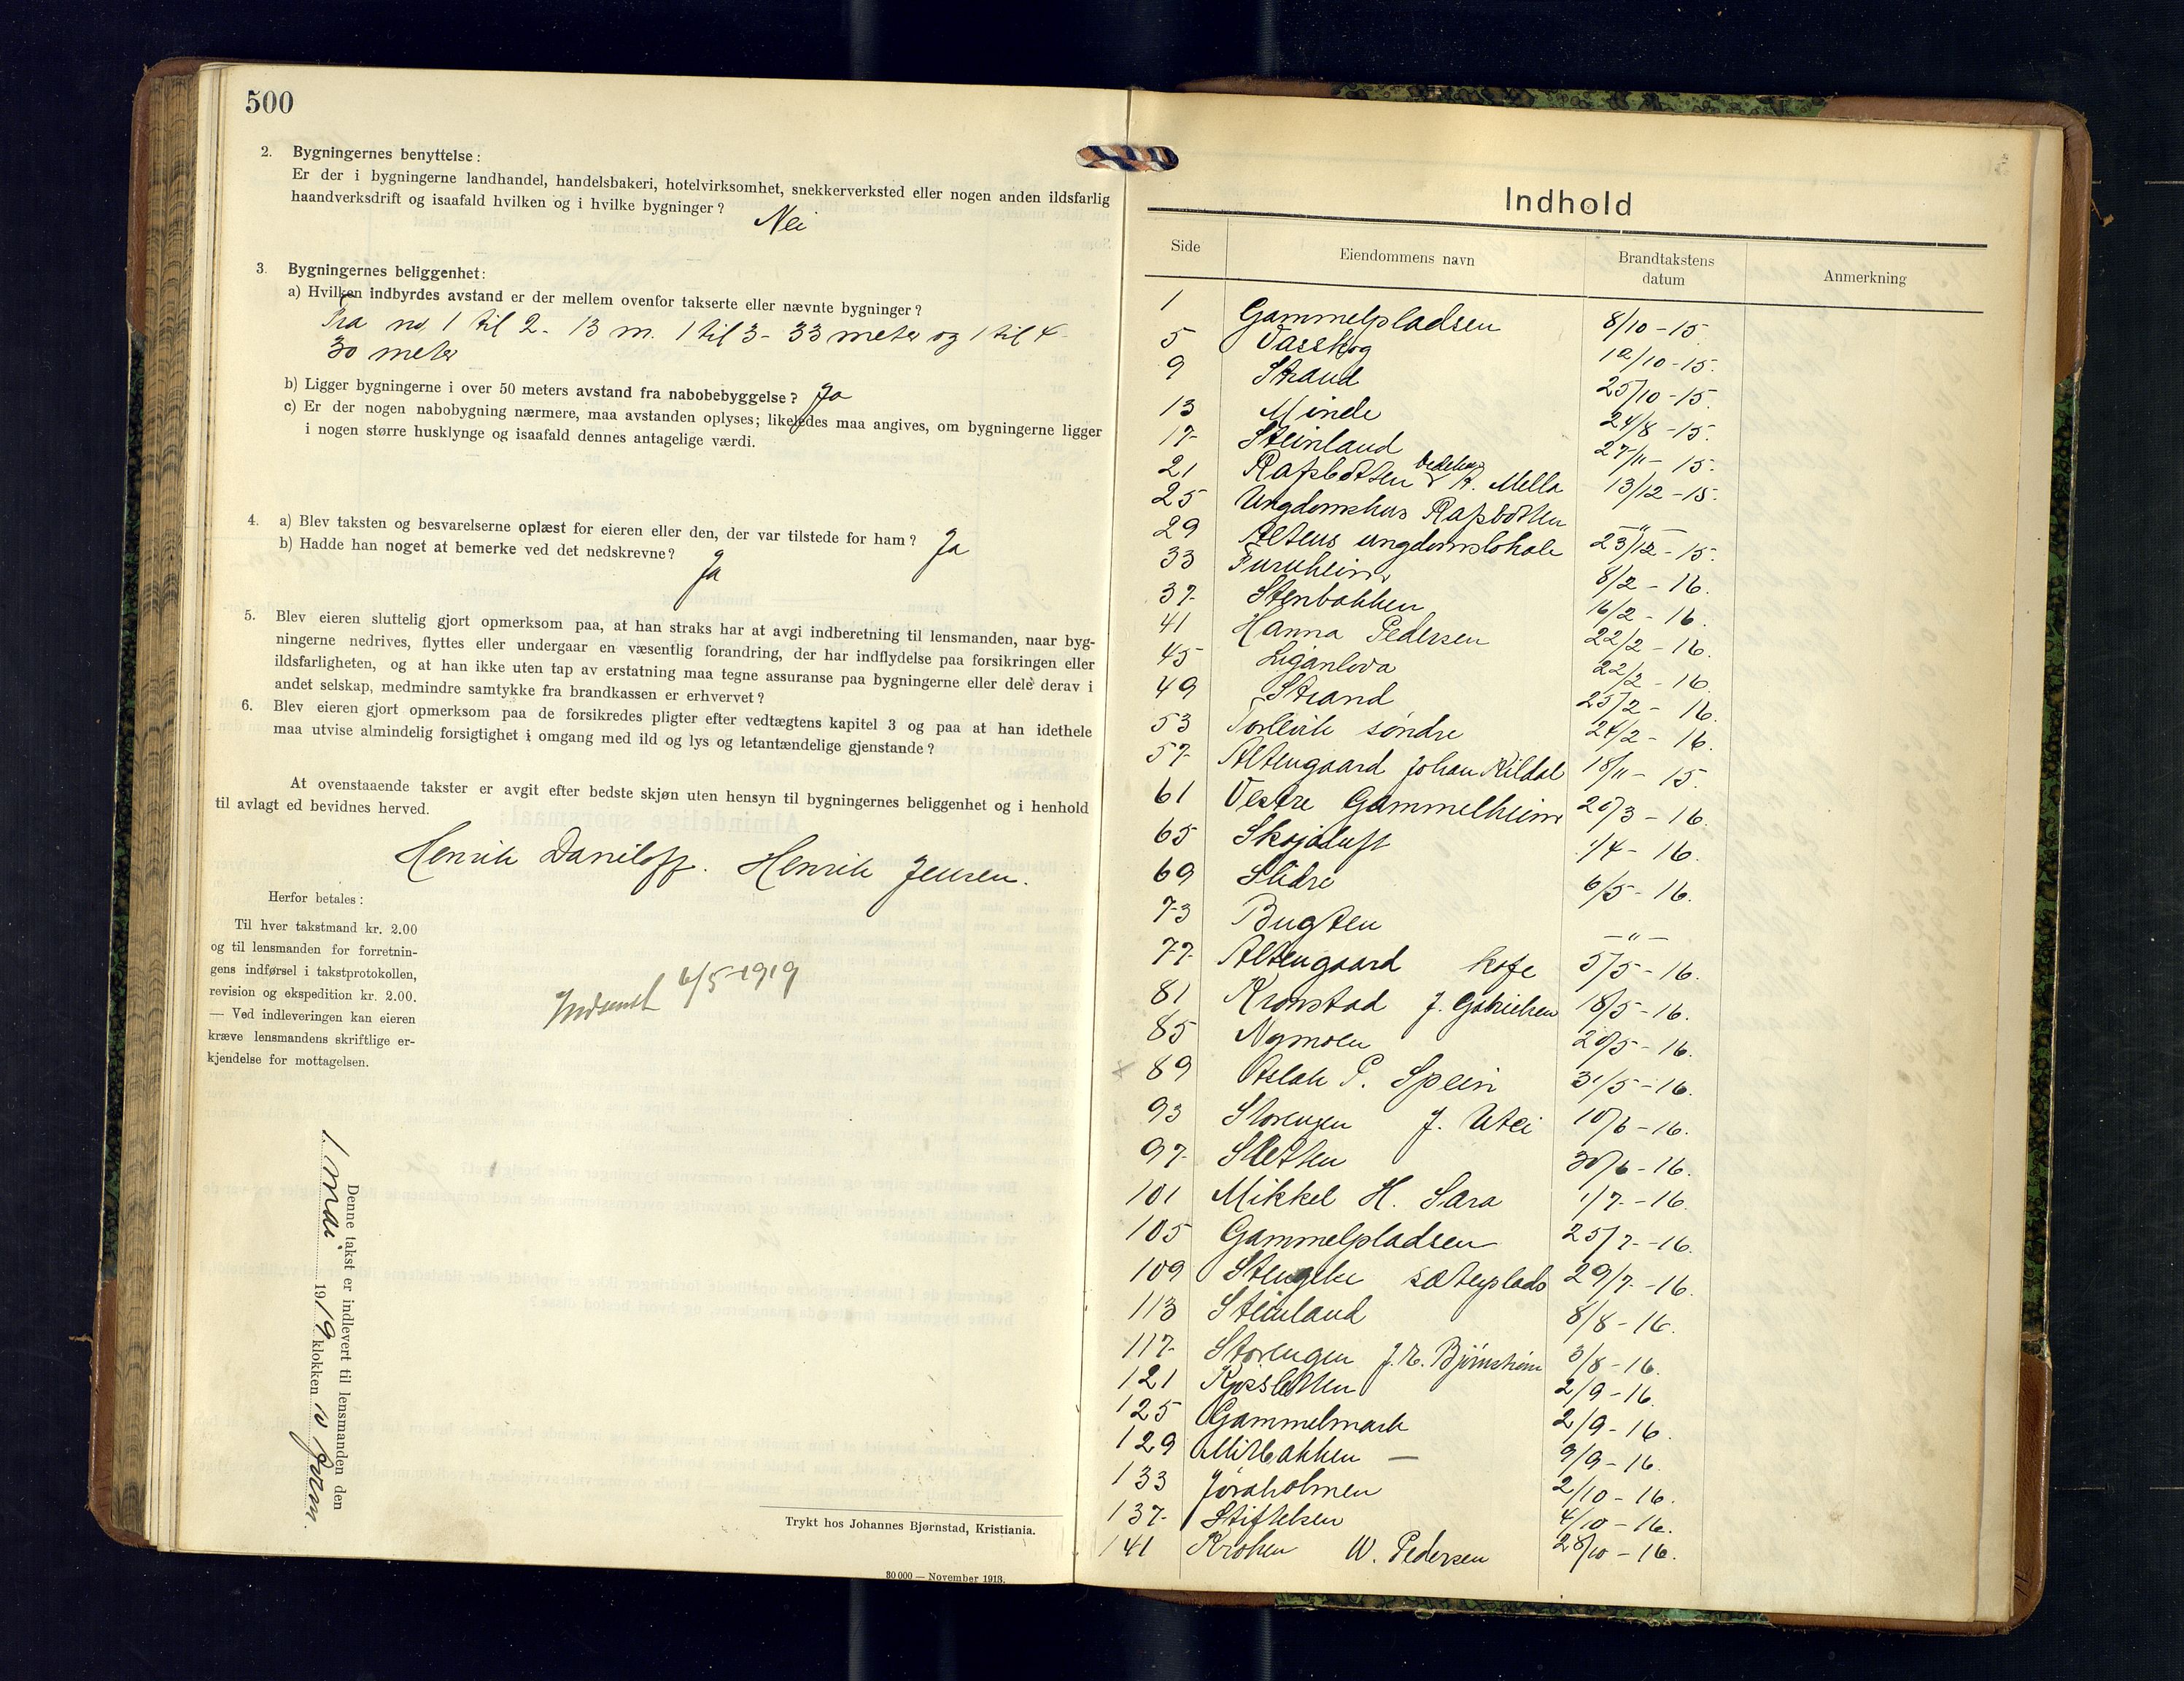 500
2. Bygningernes benyttelse:
Er der i bygningerne landhandel, handelsbakeri, hotelvirksomhet, snekkerverksted eller nogen anden ildsfarlig
haandverksdrift og isaafald hvilken og i hvilke bygninger? Nei
3. Bygningernes beliggenhet:
a) Hvilken indbyrdes avstand er der mellem ovenfor takserte eller nævnte bygninger?
Fra no 1 til 2 - 13 m. 1 til 3 - 33 meter og 1 til 4 -
30 meter
b) Ligger bygningerne i over 50 meters avstand fra nabobebyggelse? Ja
c) Er der nogen nabobygning nærmere, maa avstanden oplyses; likeledes maa angives, om bygningerne ligger
i nogen større husklynge og isaafald dennes antagelige værdi.
4. a) Blev taksten og besvarelserne oplæst for eieren eller den, der var tilstede for ham? Ja
b) Hadde han noget at bemerke ved det nedskrevne? Ja
5. Blev eieren sluttelig gjort opmerksom paa, at han straks har at avgi indberetning til lensmanden, naar byg-
ningerne nedrives, flyttes eller undergaar en væsentlig forandring, der har indflydelse paa forsikringen eller
ildsfarligheten, og at han ikke uten tap av erstatning maa tegne assuranse paa bygningerne eller dele derav i
andet selskap, medmindre samtykke fra brandkassen er erhvervet?
6. Blev eieren gjort opmerksom paa de forsikredes pligter efter vedtægtens kapitel 3 og paa at han idethele
maa utvise almindelig forsigtighet i omgang med ild og lys og letantændelige gjenstande?
At ovenstaaende takster er avgit efter bedste skjøn uten hensyn til bygningernes beliggenhet og i henhold
til avlagt ed bevidnes herved.
Henrik Daniloff. Henrik Jensen.
Herfor betales:
Til hver takstmand kr. 2.00
og til lensmanden for forretnin-
gens indførsel i takstprotokollen,
revision og ekspedition kr. 2.00.
— Ved indleveringen kan eieren
kræve lensmandens skriftlige er-
kjendelse for mottagelsen.
Indsendt 6/5-1919
Denne takst er indlevert til lensmanden den
1 mai 1919 klokken 10 form.
Trykt hos Johannes Bjørnstad, Kristiania.
30 000 — November 1913.
Indhold
Side Eiendommens navn Brandtakstens datum Anmerkning
1 Gammelpladsen 8/10-15.
5 Vasskog 12/10-15.
9 Strand 25/10-15.
13 Minde 24/8-15.
17 Steinland 27/11-15.
21 Rafsbotten Bedehus A. Mella 13/12-15.
25 Ungdomshus Rafsbotten —"—
29 Altens ungdomslokale 23/12-15.
33 Furuheim 8/2-16.
37 Stenbakken 16/2-16.
41 Hanna Pedersen 22/2-16.
45 22/2-16.
49 Strand 25/2-16.
53 søndre 24/2-16.
57 Altengaard Johan Kildal 18/11-15.
61 Vestre Gammelheim 20/3-16.
65 Skojaluft 1/4-16.
69 Slidre 6/5-16.
73 Bugten —"—
77 Altengaard 5/5-16.
81 Kronstad J. Gabrielsen 18/5-16.
85 Nymoen 20/5-16.
89 Aslak P. Spein 31/5-16.
93 Storengen J. Utsi 10/6-16.
97 Sletten 30/6-16.
101 Mikkel H. Sara 1/7-16.
105 Gammelpladsen 25/7-16.
109 Stengelse sæterplads 29/7-16.
113 Steinland 8/8-16.
117 Storengen J. E. Bjørnstrøm 3/8-16.
121 2/9-16.
125 Gammelmark 2/9-16.
129 Midtbakken — 9/9-16.
133 Jøraholmen 2/10-16.
137 Stiftelsen 4/10-16.
141 Kroken W. Pedersen 28/10-16.